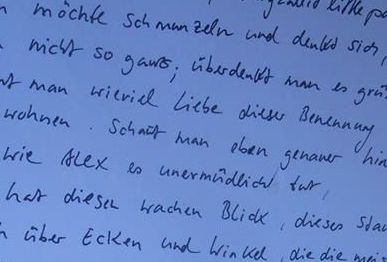 möchte schmunzeln und denkt sich,
nicht so ganz; überdenkt man es
man wieviel Liebe dieser Benennung
wohnen. Schaut man eben genauer hin
wie Alex es unermüdlich tut,
hat diesen wachen Blick, dieses
über Ecken und Winkel, die die